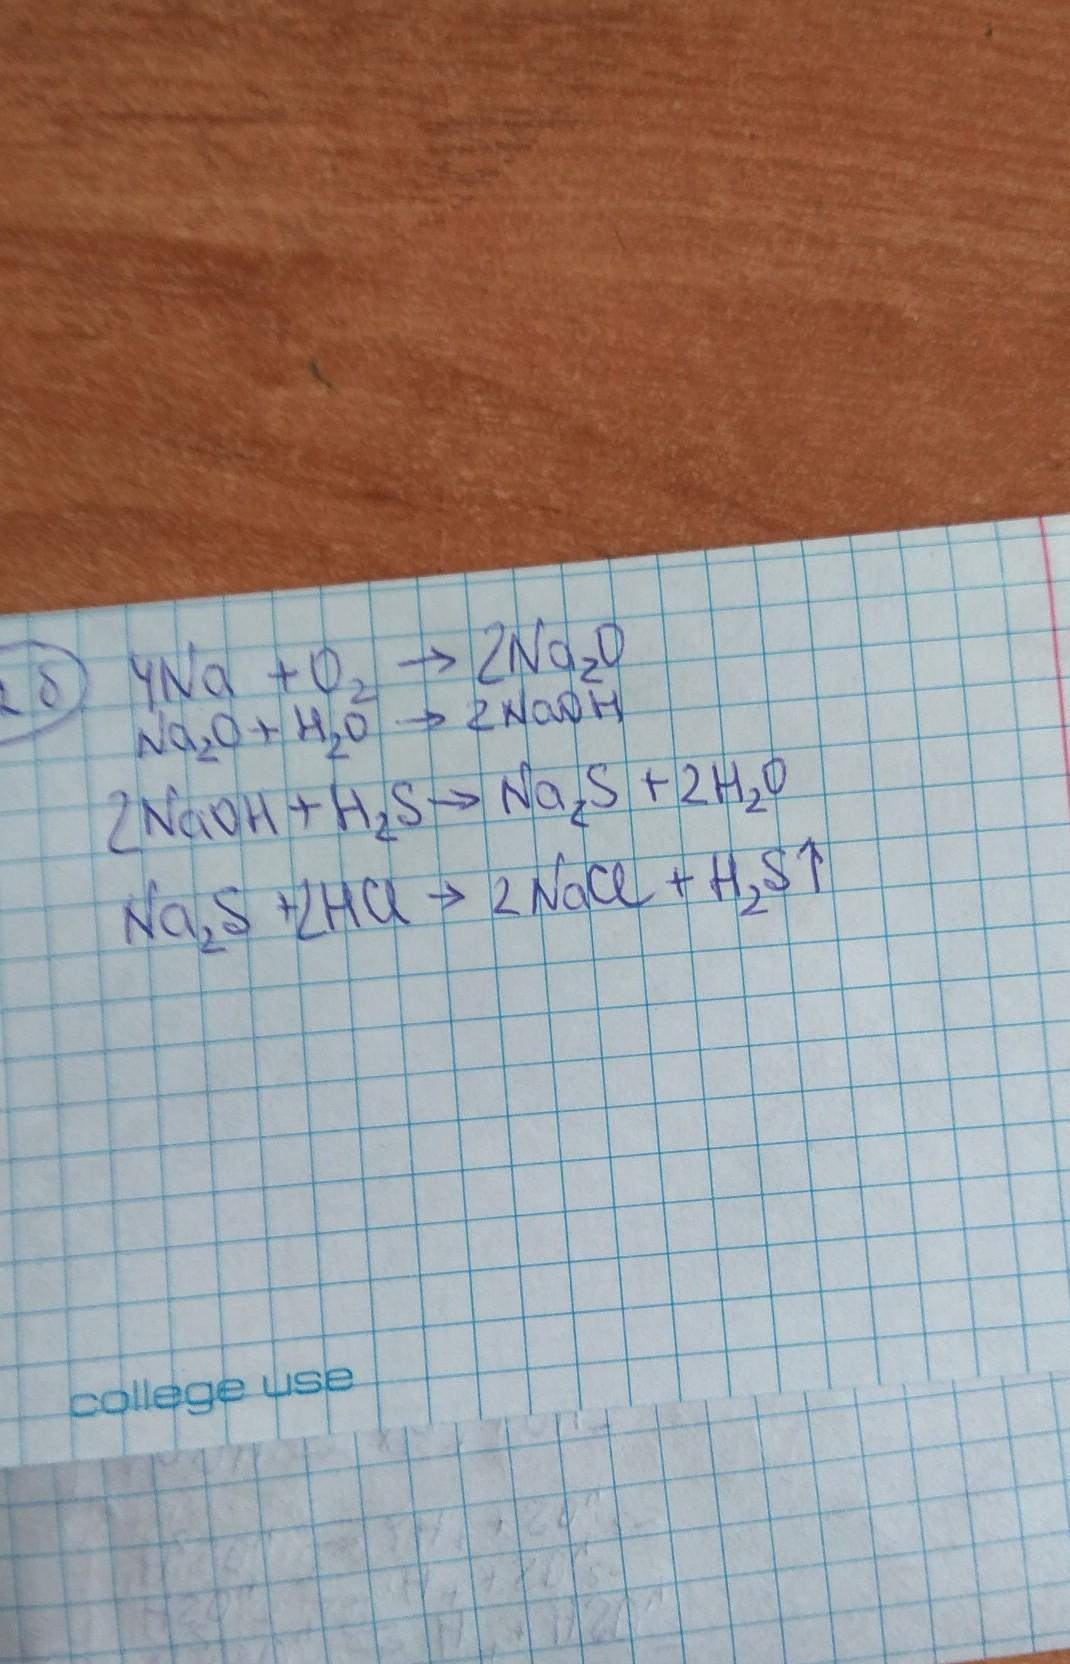 4Na + O₂ → 2Na₂O
Na₂O + H₂O → 2NaOH
2NaOH + H₂S → Na₂S + 2H₂O
Na₂S + 2HCl → 2NaCl + H₂S↑
college use